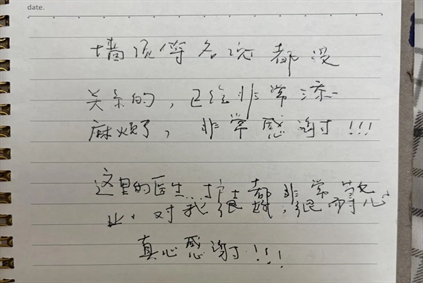 date.
都没
关系的，已经非常添
麻烦了，非常感谢!!!
这里的医生、护士都非常专
业，对我很好，很耐心
真心感谢!!!